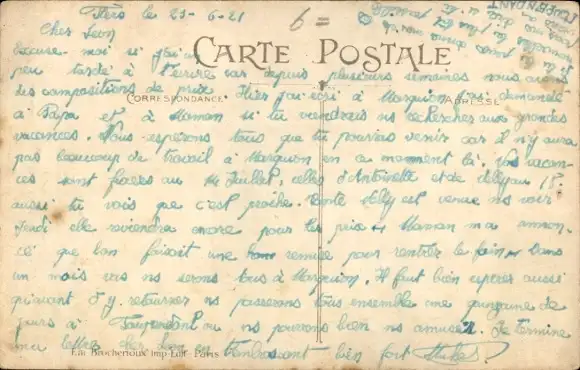 le 23-6-21
6 =
Cher Léon
CARTE POSTALE
excuse-moi si j'ai un
peu tardé à t'écrire car depuis plusieurs semaines nous avons
des compositions de prix. Hier j'ai écrit à Marquion j'ai demandé
CORRESPONDANCE
ADRESSE
à Papa et à Maman si tu viendrais ns rechercher aux grandes
vacances. Nous espérons tous que tu pourras venir car il n'y aura
pas beaucoup de travail à Marquion en ce moment là. Vos vacan-
ces sont fixées au 14 Juillet, celles d'Antoinette et de
aussi tu vois que c'est proche. Tante est venue ns voir
Jeudi elle reviendra encore pour les prix. Maman m'a annon-
cé que bon faisait une remise pour rentrer le foin. Dans
un mois ns serons tous à Marquion. Il faut bien espérer aussi
qu'avant d'y retourner ns passerons tous ensemble une quinzaine de
jours à ou ns pourrons bien ns amuser. Je termine
ma lettre cher Léon en t'embrassant bien fort
Imp-Edit-Paris